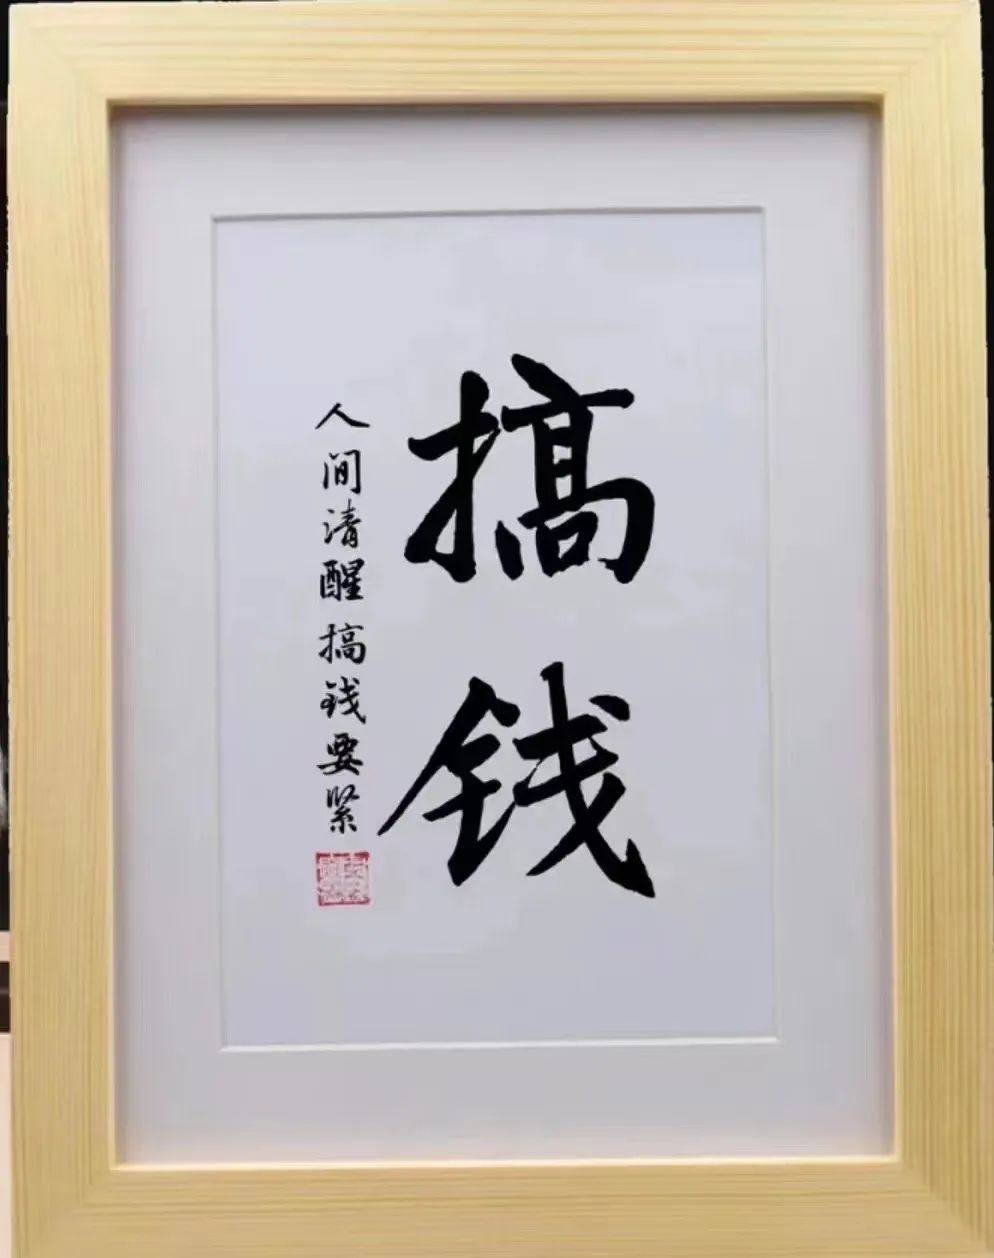 搞钱
人间清醒搞钱要紧